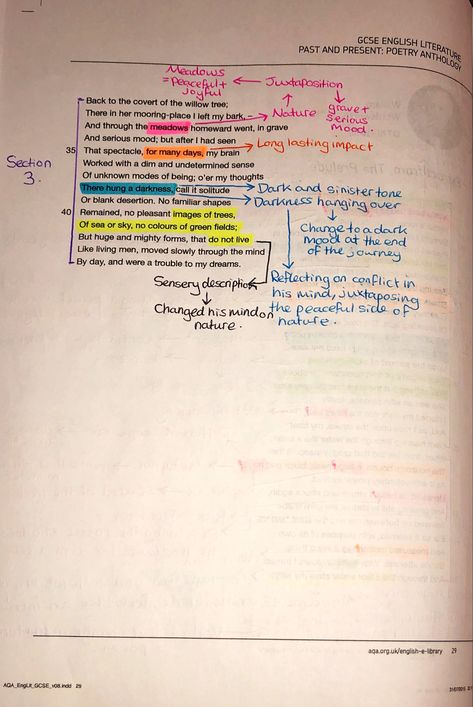 GCSE ENGLISH LITERATURE
PAST AND PRESENT: POETRY ANTHOLOGY
Meadows
= Peaceful +
Joyful
Juxtaposition
Nature
grave +
serious
mood.
Back to the covert of the willow tree;
There in her mooring-place I left my bark, –
And through the meadows homeward went, in grave
And serious mood; but after I had seen
35 That spectacle, for many days, my brain
Long lasting impact
Worked with a dim and undetermined sense
Of unknown modes of being; o'er my thoughts
There hung a darkness, call it solitude
Dark and sinister tone
Or blank desertion. No familiar shapes
Darkness hanging over
40 Remained, no pleasant images of trees,
Of sea or sky, no colours of green fields;
But huge and mighty forms, that do not live
Like living men, moved slowly through the mind
By day, and were a trouble to my dreams.
Section
3.
Change to a dark
mood at the end
of the journey
Sensery description
Changed his mind on
nature.
Reflecting on conflict in
his mind, juxtaposing
the peaceful side of
nature.
aqa.org.uk/english-e-library 29
AQA_EngLit_GCSE_v08.indd 29